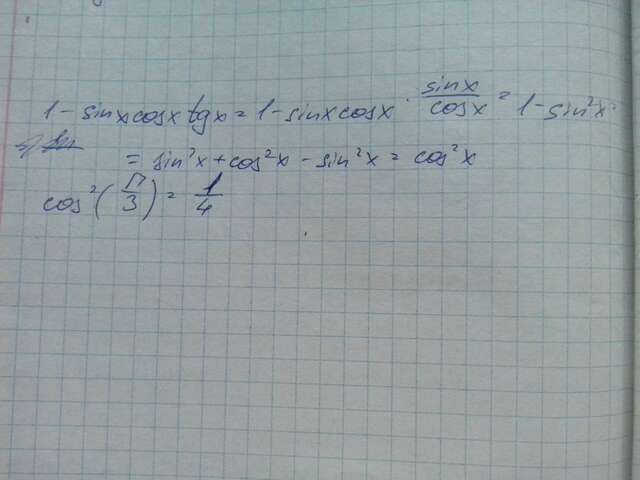 1 - sinx cosx tgx = 1 - sinx cosx · sinx/cosx = 1 - sin²x =
= sin²x + cos²x - sin²x = cos²x
cos²(π/3) = 1/4